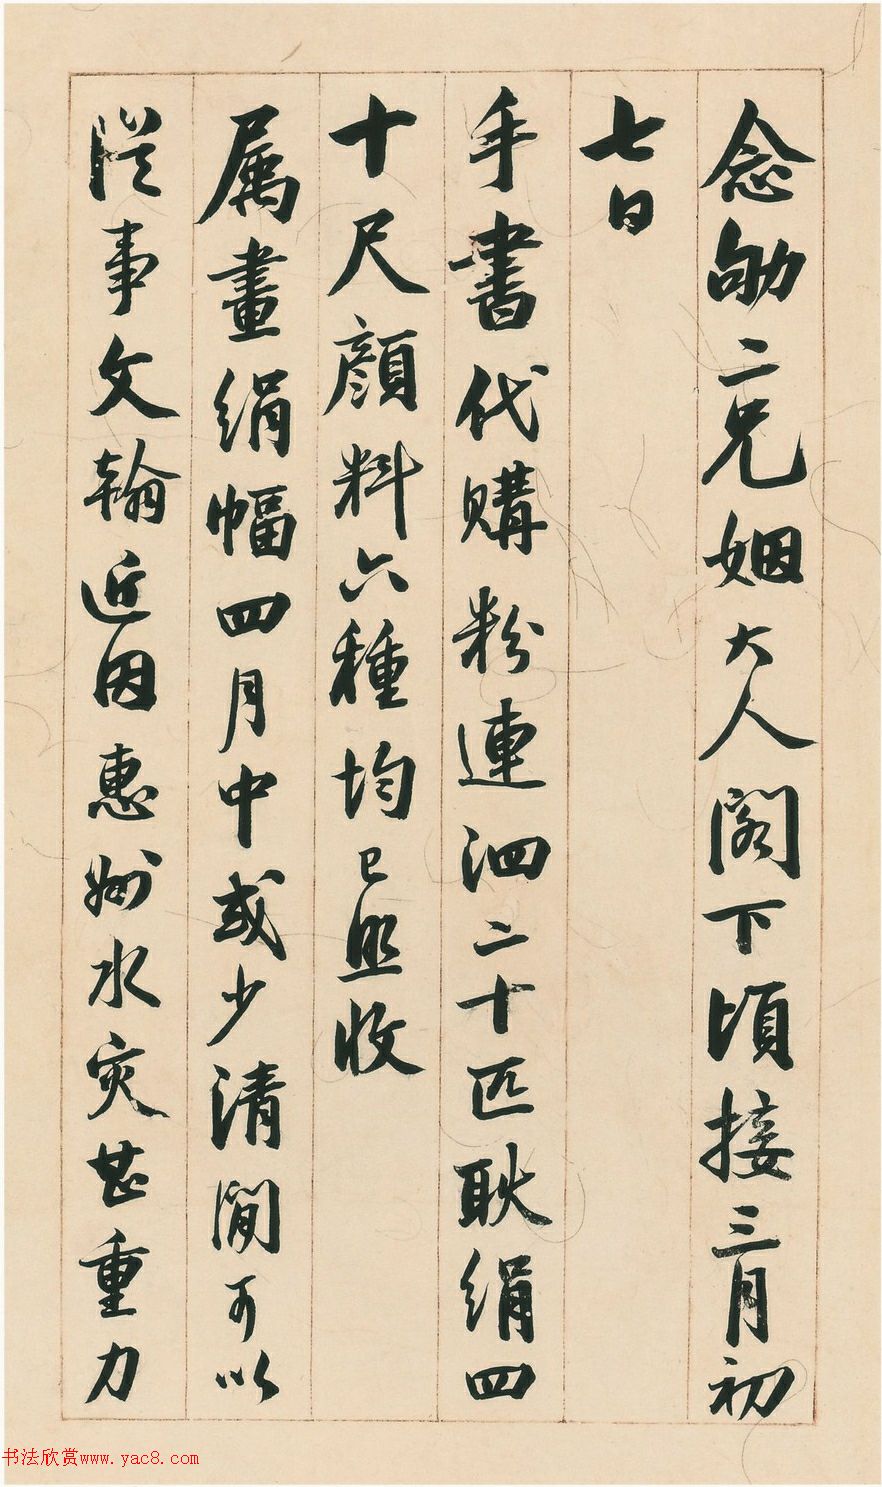 念劬二兄姻大人閣下頃接三月初
七日
手書代購粉連泗二十匹耿絹四
十尺顏料六種均已照收
属畫絹幅四月中或少清閒可以
從事文翰近因惠州水灾甚重力
书法欣赏www.yac8.com